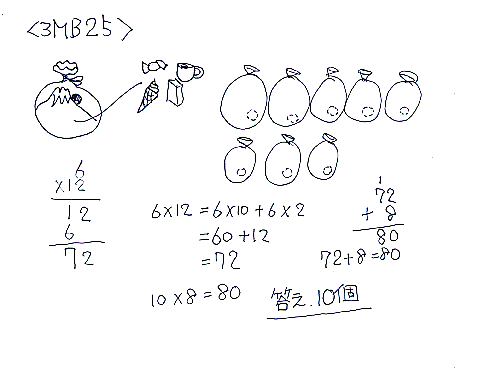 <3MB25>
6
×12
12
6
72
6×12=6×10+6×2
=60+12
=72
10×8=80
1
72
+ 8
80
72+8=80
答え.10個